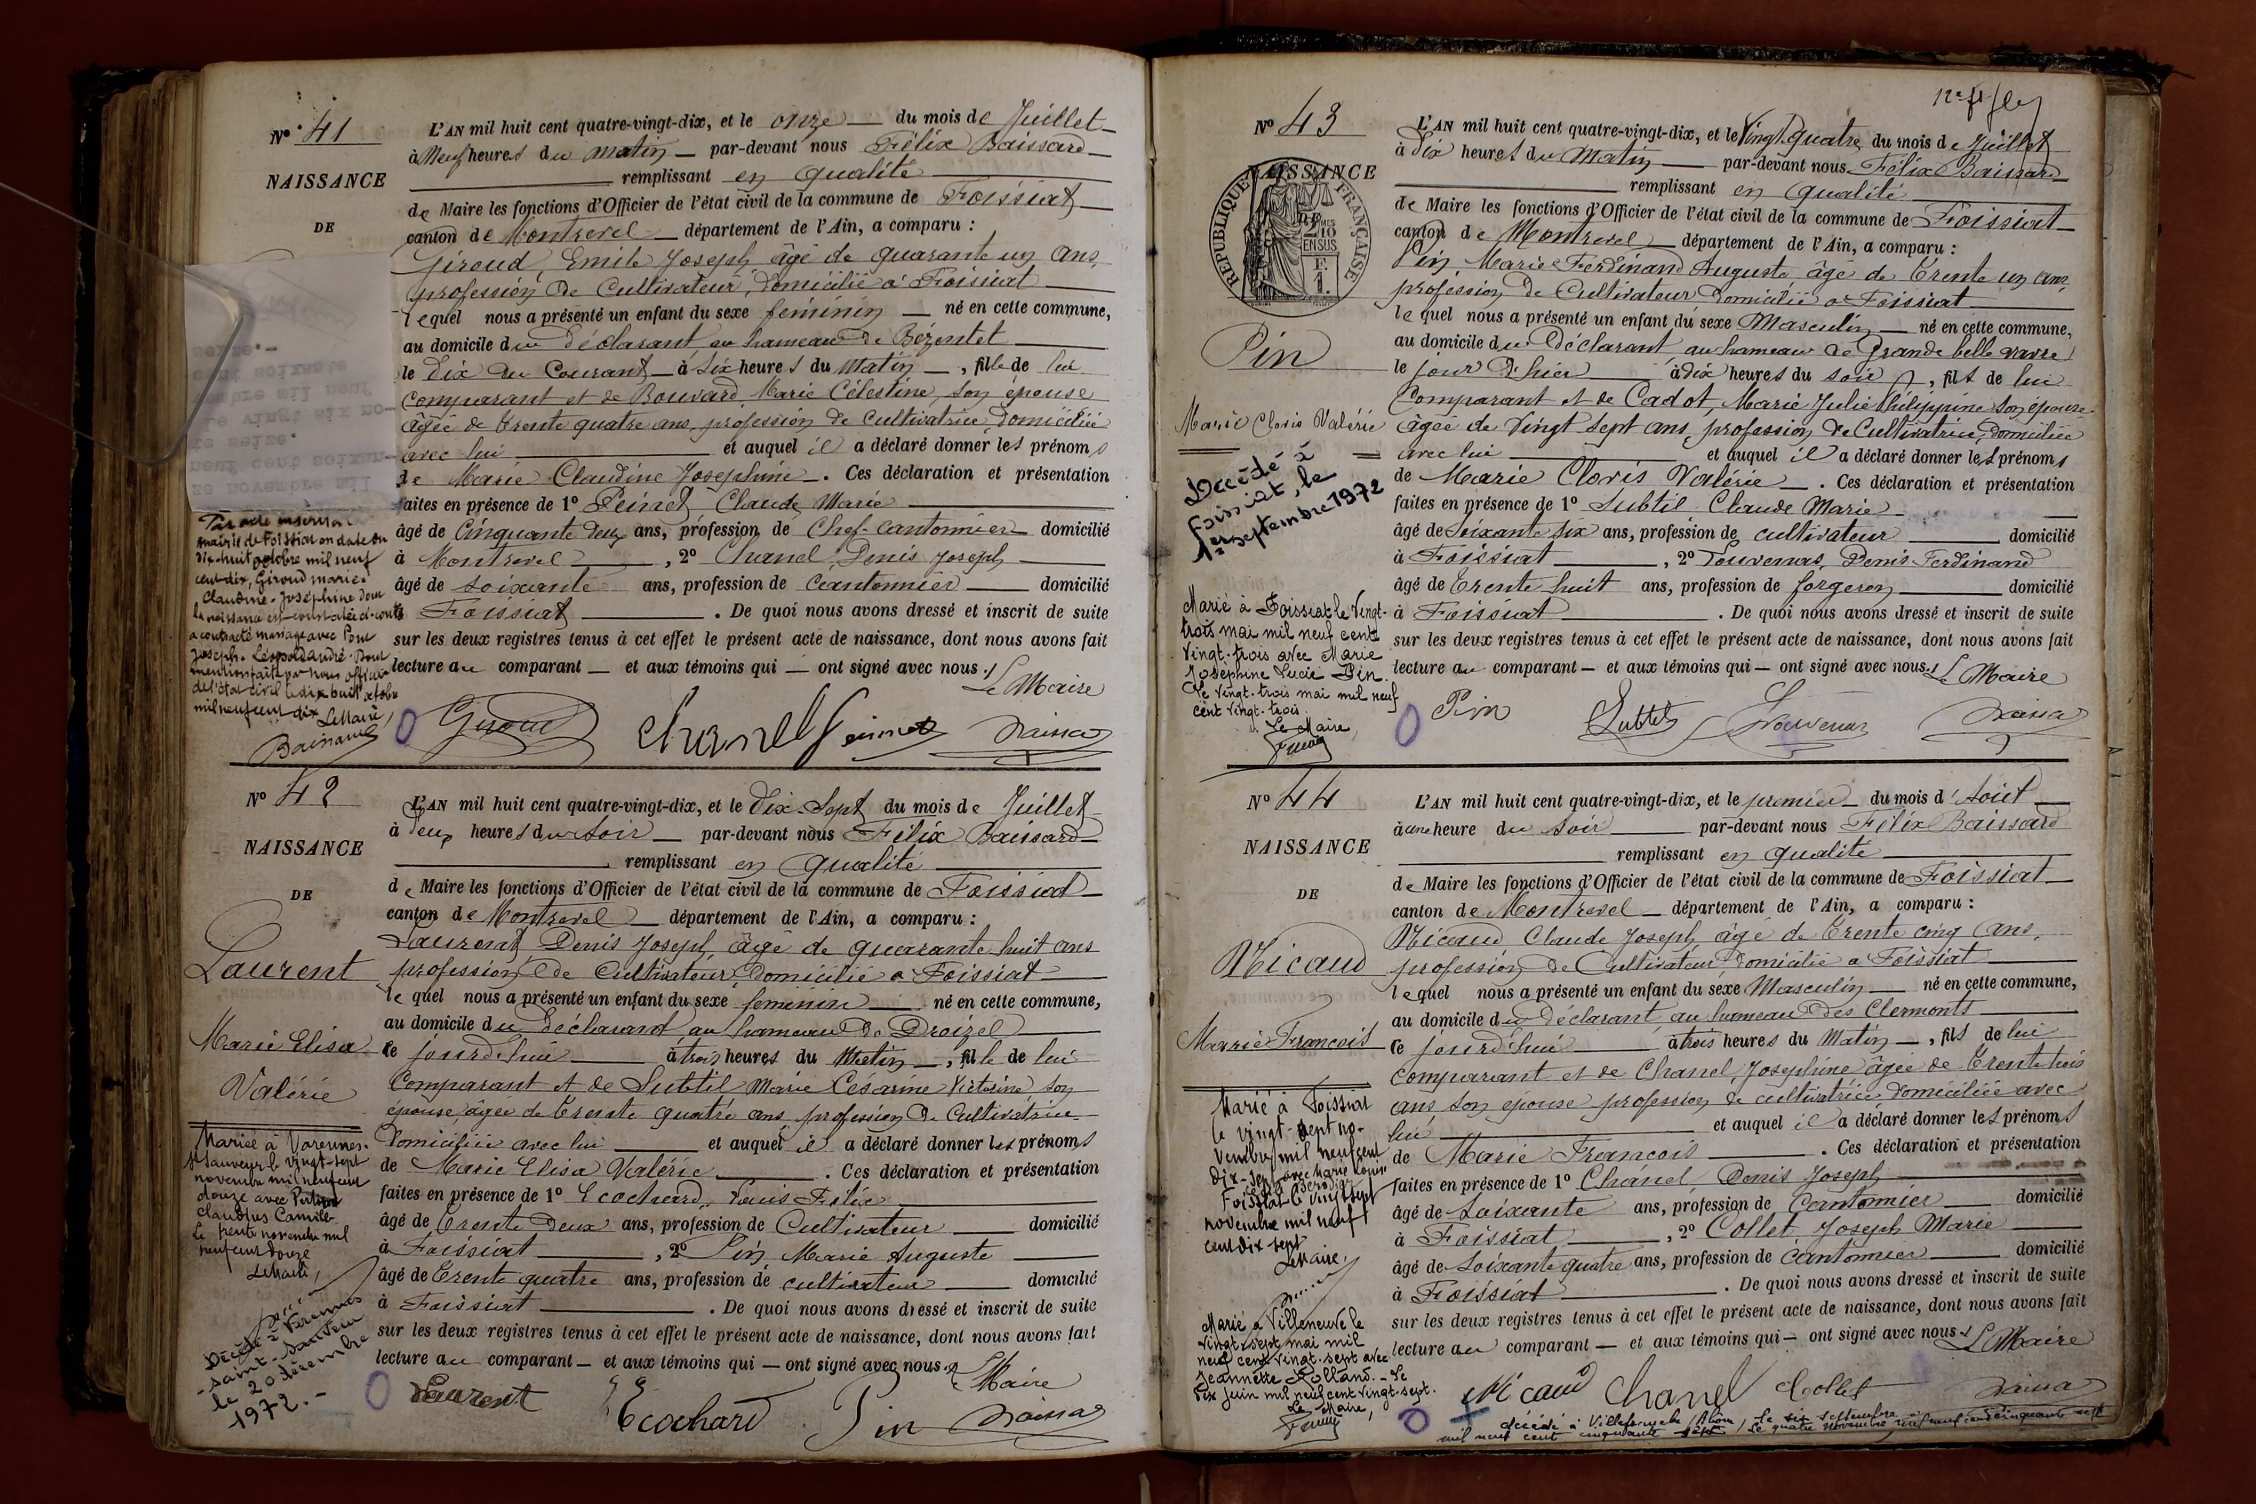 Nº 41
NAISSANCE
DE
L'AN mil huit cent quatre-vingt-dix, et le onze du mois de Juillet
à Neuf heures du matin par-devant nous Félix Baissard
remplissant en qualité
de Maire les fonctions d'Officier de l'état civil de la commune de Foissiat
canton de Montrevel département de l'Ain, a comparu :
Giroud, Emile Joseph, âgé de quarante un ans,
profession de Cultivateur, domicilié à Foissiat
lequel nous a présenté un enfant du sexe féminin né en cette commune,
au domicile du déclarant au hameau de Bézentet
le dix du Courant à six heures du matin, fille de lui
comparant et de Bouvard Marie Célestine, son épouse
âgée de trente quatre ans, profession de cultivatrice, domiciliée
avec lui et auquel il a déclaré donner les prénoms
de Marie Claudine Josephine. Ces déclaration et présentation
faites en présence de 1º Peinet Claude Marie
âgé de cinquante deux ans, profession de Chef-cantonnier domicilié
à Montrevel, 2º Chanel Denis Joseph
âgé de soixante ans, profession de Cantonnier domicilié
à Foissiat. De quoi nous avons dressé et inscrit de suite
sur les deux registres tenus à cet effet le présent acte de naissance, dont nous avons fait
lecture au comparant et aux témoins qui ont signé avec nous.
Le Maire
Giroud Chanel Peinet
Par acte inscrit
mairie de Foissiat en date du
dix-huit octobre mil neuf
cent dix, Giroud marie
Claudine-Joséphine dont
la naissance est constatée ci-contre
a contracté mariage avec
Joseph-Léopold André. Pour
mention faite par nous officier
de l'état civil le dix huit octobre
mil neuf cent dix Le Maire,
Baissard
Nº 42
NAISSANCE
DE
Laurent
Marie Elisa
Valérie
L'AN mil huit cent quatre-vingt-dix, et le dix Sept du mois de Juillet
à deux heures du soir par-devant nous Félix Baissard
remplissant en qualité
de Maire les fonctions d'Officier de l'état civil de la commune de Foissiat
canton de Montrevel département de l'Ain, a comparu :
Laurent Denis Joseph, âgé de quarante huit ans
profession de Cultivateur, domicilié à Foissiat
lequel nous a présenté un enfant du sexe feminin né en cette commune,
au domicile du déclarant au hameau de Droizel
ce jourd'hui à trois heures du Matin, fille de lui
Comparant et de Subtil Marie Césarine Victorine son
épouse âgée de trente quatre ans, profession de Cultivatrice
domiciliée avec lui et auquel il a déclaré donner les prénoms
de Marie Elisa Valérie. Ces déclaration et présentation
faites en présence de 1º Ecochard, Louis Félix
âgé de trente deux ans, profession de Cultivateur domicilié
à Foissiat, 2º Pin Marie Auguste
âgé de trente quatre ans, profession de cultivateur domicilié
à Foissiat. De quoi nous avons dressé et inscrit de suite
sur les deux registres tenus à cet effet le présent acte de naissance, dont nous avons fait
lecture au comparant et aux témoins qui ont signé avec nous.
Le Maire
Laurent Ecochard Pin
Mariée à Varennes-
St Sauveur le vingt-sept
novembre mil neuf cent
douze avec
Claudius Camille
Le trente novembre mil
neuf cent douze
Le Maire,
Décédée à Varennes
-Saint-Sauveur
le 20 décembre
1972.-
Nº 43
NAISSANCE
RÉPUBLIQUE FRANÇAISE
Pin
Marie Clovis Valérie
L'AN mil huit cent quatre-vingt-dix, et le Vingt quatre du mois de Juillet
à dix heures du Matin par-devant nous Félix Baissard
remplissant en qualité
de Maire les fonctions d'Officier de l'état civil de la commune de Foissiat
canton de Montrevel département de l'Ain, a comparu :
Pin, Marie Ferdinand Auguste âgé de trente un ans,
profession de Cultivateur domicilié à Foissiat
lequel nous a présenté un enfant du sexe Masculin né en cette commune,
au domicile du déclarant au hameau de Grande belle vavre
le jour d'hier à dix heures du soir, fils de lui
Comparant et de Cadot, Marie Julie Philippine son épouse
âgée de Vingt sept ans, profession de Cultivatrice, domiciliée
avec lui et auquel il a déclaré donner les prénoms
de Marie Clovis Valérie. Ces déclaration et présentation
faites en présence de 1º Subtil Claude Marie
âgé de soixante six ans, profession de cultivateur domicilié
à Foissiat, 2º Louvenas, Denis Ferdinand
âgé de trente huit ans, profession de forgeron domicilié
à Foissiat. De quoi nous avons dressé et inscrit de suite
sur les deux registres tenus à cet effet le présent acte de naissance, dont nous avons fait
lecture au comparant et aux témoins qui ont signé avec nous.
Le Maire
Pin Subtil
Décédé à
Foissiat, le
1er septembre 1972
Marié à Foissiat le vingt-
trois mai mil neuf cent
vingt-trois avec Marie
Joséphine Lucie Pin.
Le vingt-trois mai mil neuf
cent vingt-trois.
Le Maire,
Nº 44
NAISSANCE
DE
Micaud
Marie François
L'AN mil huit cent quatre-vingt-dix, et le premier du mois d'Août
à une heure du soir par-devant nous Félix Baissard
remplissant en qualité
de Maire les fonctions d'Officier de l'état civil de la commune de Foissiat
canton de Montrevel département de l'Ain, a comparu :
Micaud Claude Joseph, âgé de trente cinq ans,
profession de Cultivateur, domicilié à Foissiat
lequel nous a présenté un enfant du sexe Masculin né en cette commune,
au domicile du déclarant au hameau des Clermonts
ce jourd'hui à trois heures du Matin, fils de lui
comparant et de Chanel, Joséphine âgée de trente trois
ans, son épouse profession de cultivatrice domiciliée avec
lui et auquel il a déclaré donner les prénoms
de Marie François. Ces déclaration et présentation
faites en présence de 1º Chanel Denis Joseph
âgé de soixante ans, profession de Cantonnier domicilié
à Foissiat, 2º Collet Joseph Marie
âgé de soixante quatre ans, profession de Cantonnier domicilié
à Foissiat. De quoi nous avons dressé et inscrit de suite
sur les deux registres tenus à cet effet le présent acte de naissance, dont nous avons fait
lecture au comparant et aux témoins qui ont signé avec nous.
Le Maire
Micaud Chanel Collet
Marié à Foissiat
le vingt-sept no-
vembre mil neuf cent
dix-sept avec Marie
Foissiat le vingt sept
novembre mil neuf
cent dix sept
Le Maire,
Marié à Villeneuve le
vingt-sept mai mil
neuf cent vingt-sept avec
Jeannette Rolland. - Le
dix juin mil neuf cent vingt-sept.
Le Maire,
décédé à Villefranche (Rhône) le six septembre
mil neuf cent cinquante sept, Le quatre novembre mil neuf cent cinquante sept